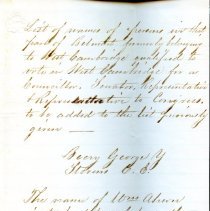 List of names of persons in that
part of Belmont formerly belonging
to West Cambridge qualified to
vote in West Cambridge for a
Councillor, Senator, Representative
& Representative to Congress,
to be added to the list previously
given —
Beery George Y
Stearns C. C.
The name of Wm Ahern